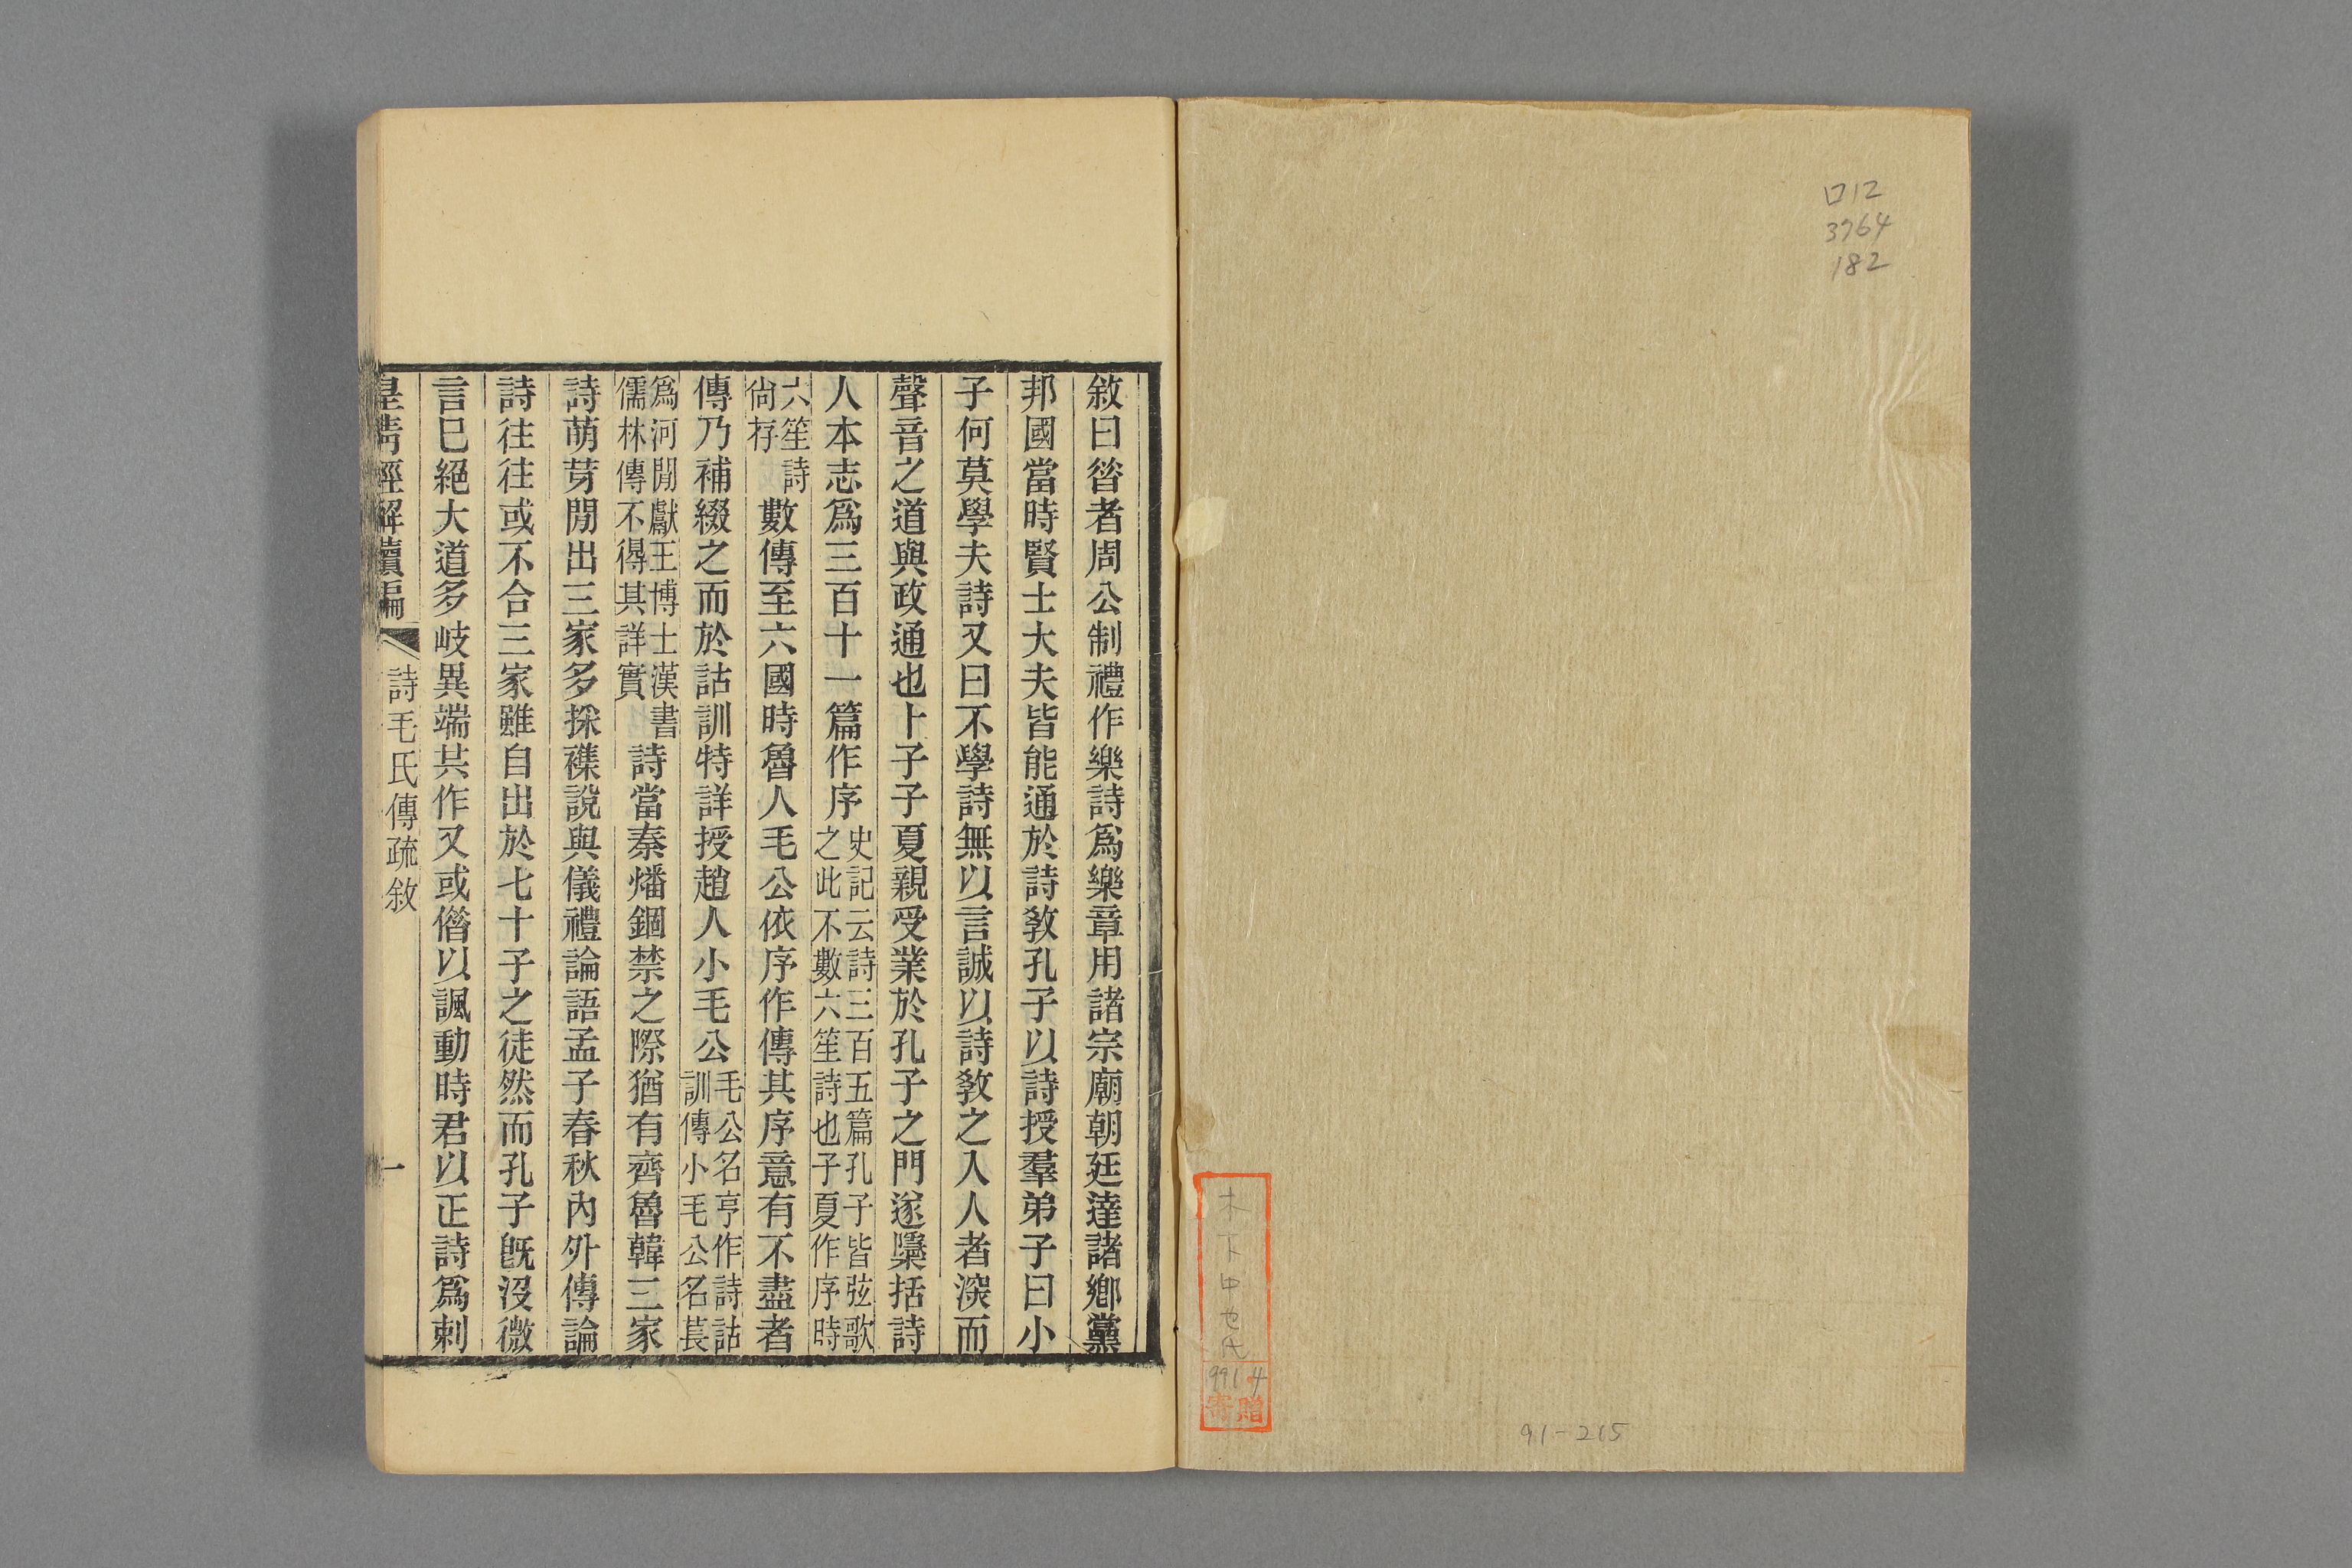 口12
3764
182
木下中也氏
991 4
寄贈
91-215
敘曰昝者周公制禮作樂詩爲樂章用諸宗廟朝廷達諸鄉黨
邦國當時賢士大夫皆能通於詩敎孔子以詩授羣弟子曰小
子何莫學夫詩又曰不學詩無以言誠以詩敎之入人者深而
聲音之道與政通也卜子子夏親受業於孔子之門遂檃括詩
人本志爲三百十一篇作序史記云詩三百五篇孔子皆弦歌
之此不數六笙詩也子夏作序時
六笙詩
尙存數傳至六國時魯人毛公依序作傳其序意有不盡者
傳乃補綴之而於詁訓特詳授趙人小毛公毛公名亨作詩詁
訓傳小毛公名萇
爲河閒獻王博士漢書
儒林傳不得其詳實詩當秦燔錮禁之際猶有齊魯韓三家
詩萌芽閒出三家多採襍說與儀禮論語孟子春秋內外傳論
詩往往或不合三家雖自出於七十子之徒然而孔子旣沒微
言已絕大道多岐異端共作又或偺以諷動時君以正詩爲刺
皇淸經解續編
詩毛氏傳疏敘
一